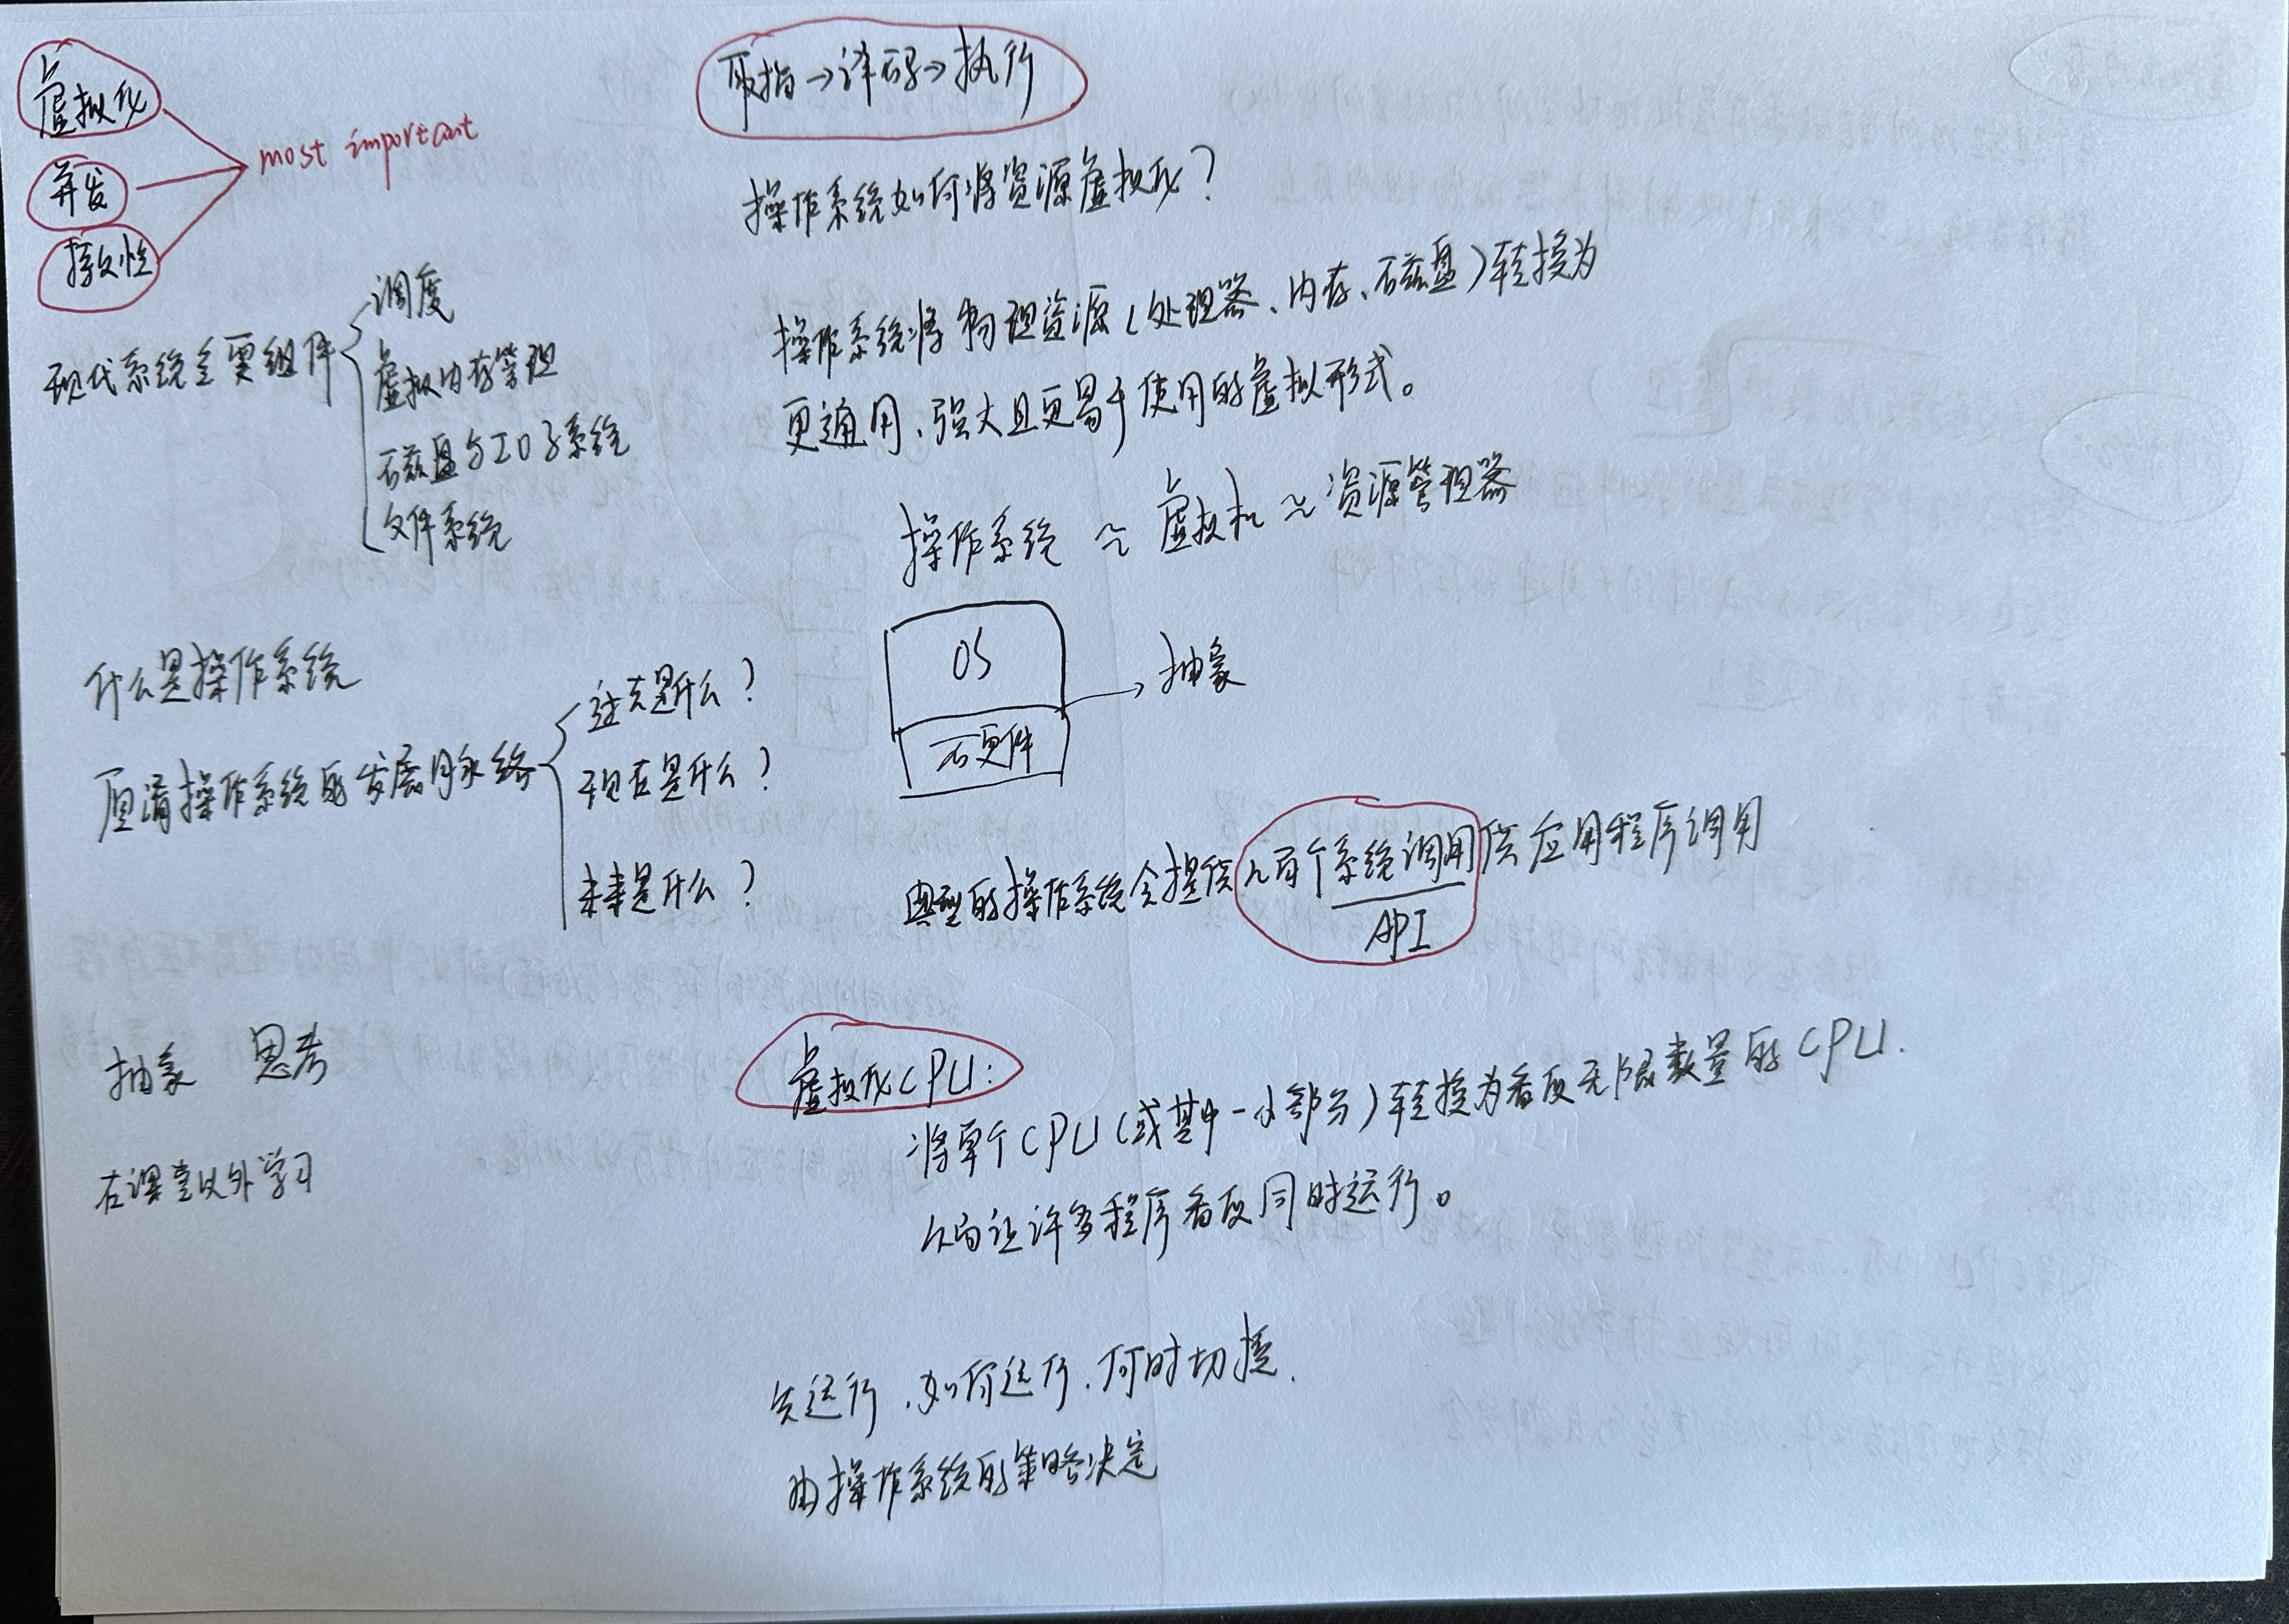 虚拟化
并发
持久性
most important
现代系统主要组件
调度
虚拟内存管理
磁盘与IO子系统
文件系统
什么是操作系统
厘清操作系统的发展脉络
过去是什么？
现在是什么？
未来是什么？
抽象 思考
在课堂以外学习
取指→译码→执行
操作系统如何将资源虚拟化？
操作系统将物理资源（处理器、内存、磁盘）转换为
更通用、强大且更易于使用的虚拟形式。
操作系统 ≈ 虚拟机 ≈ 资源管理器
OS
硬件
→ 抽象
典型的操作系统会提供几百个系统调用供应用程序调用
API
虚拟化CPU：
将单个CPU（或其中一小部分）转换为看似无限数量的CPU.
从而让许多程序看似同时运行。
先运行、如何运行、何时切换.
由操作系统的策略决定